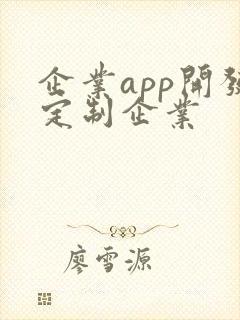 企業app開發
定制企業
廖雪源